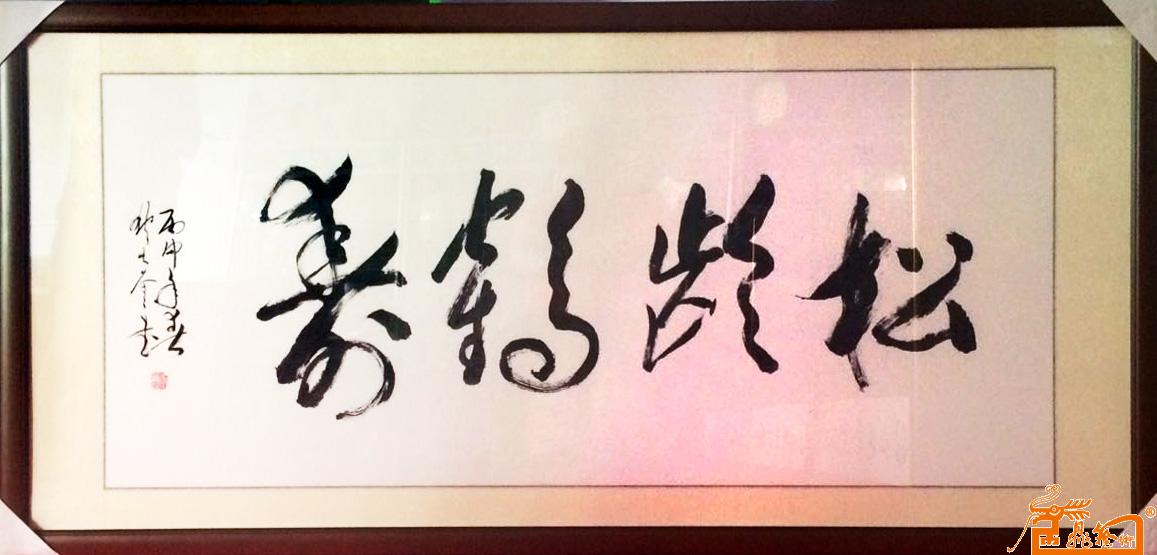 松龄鹤寿
丙申年春